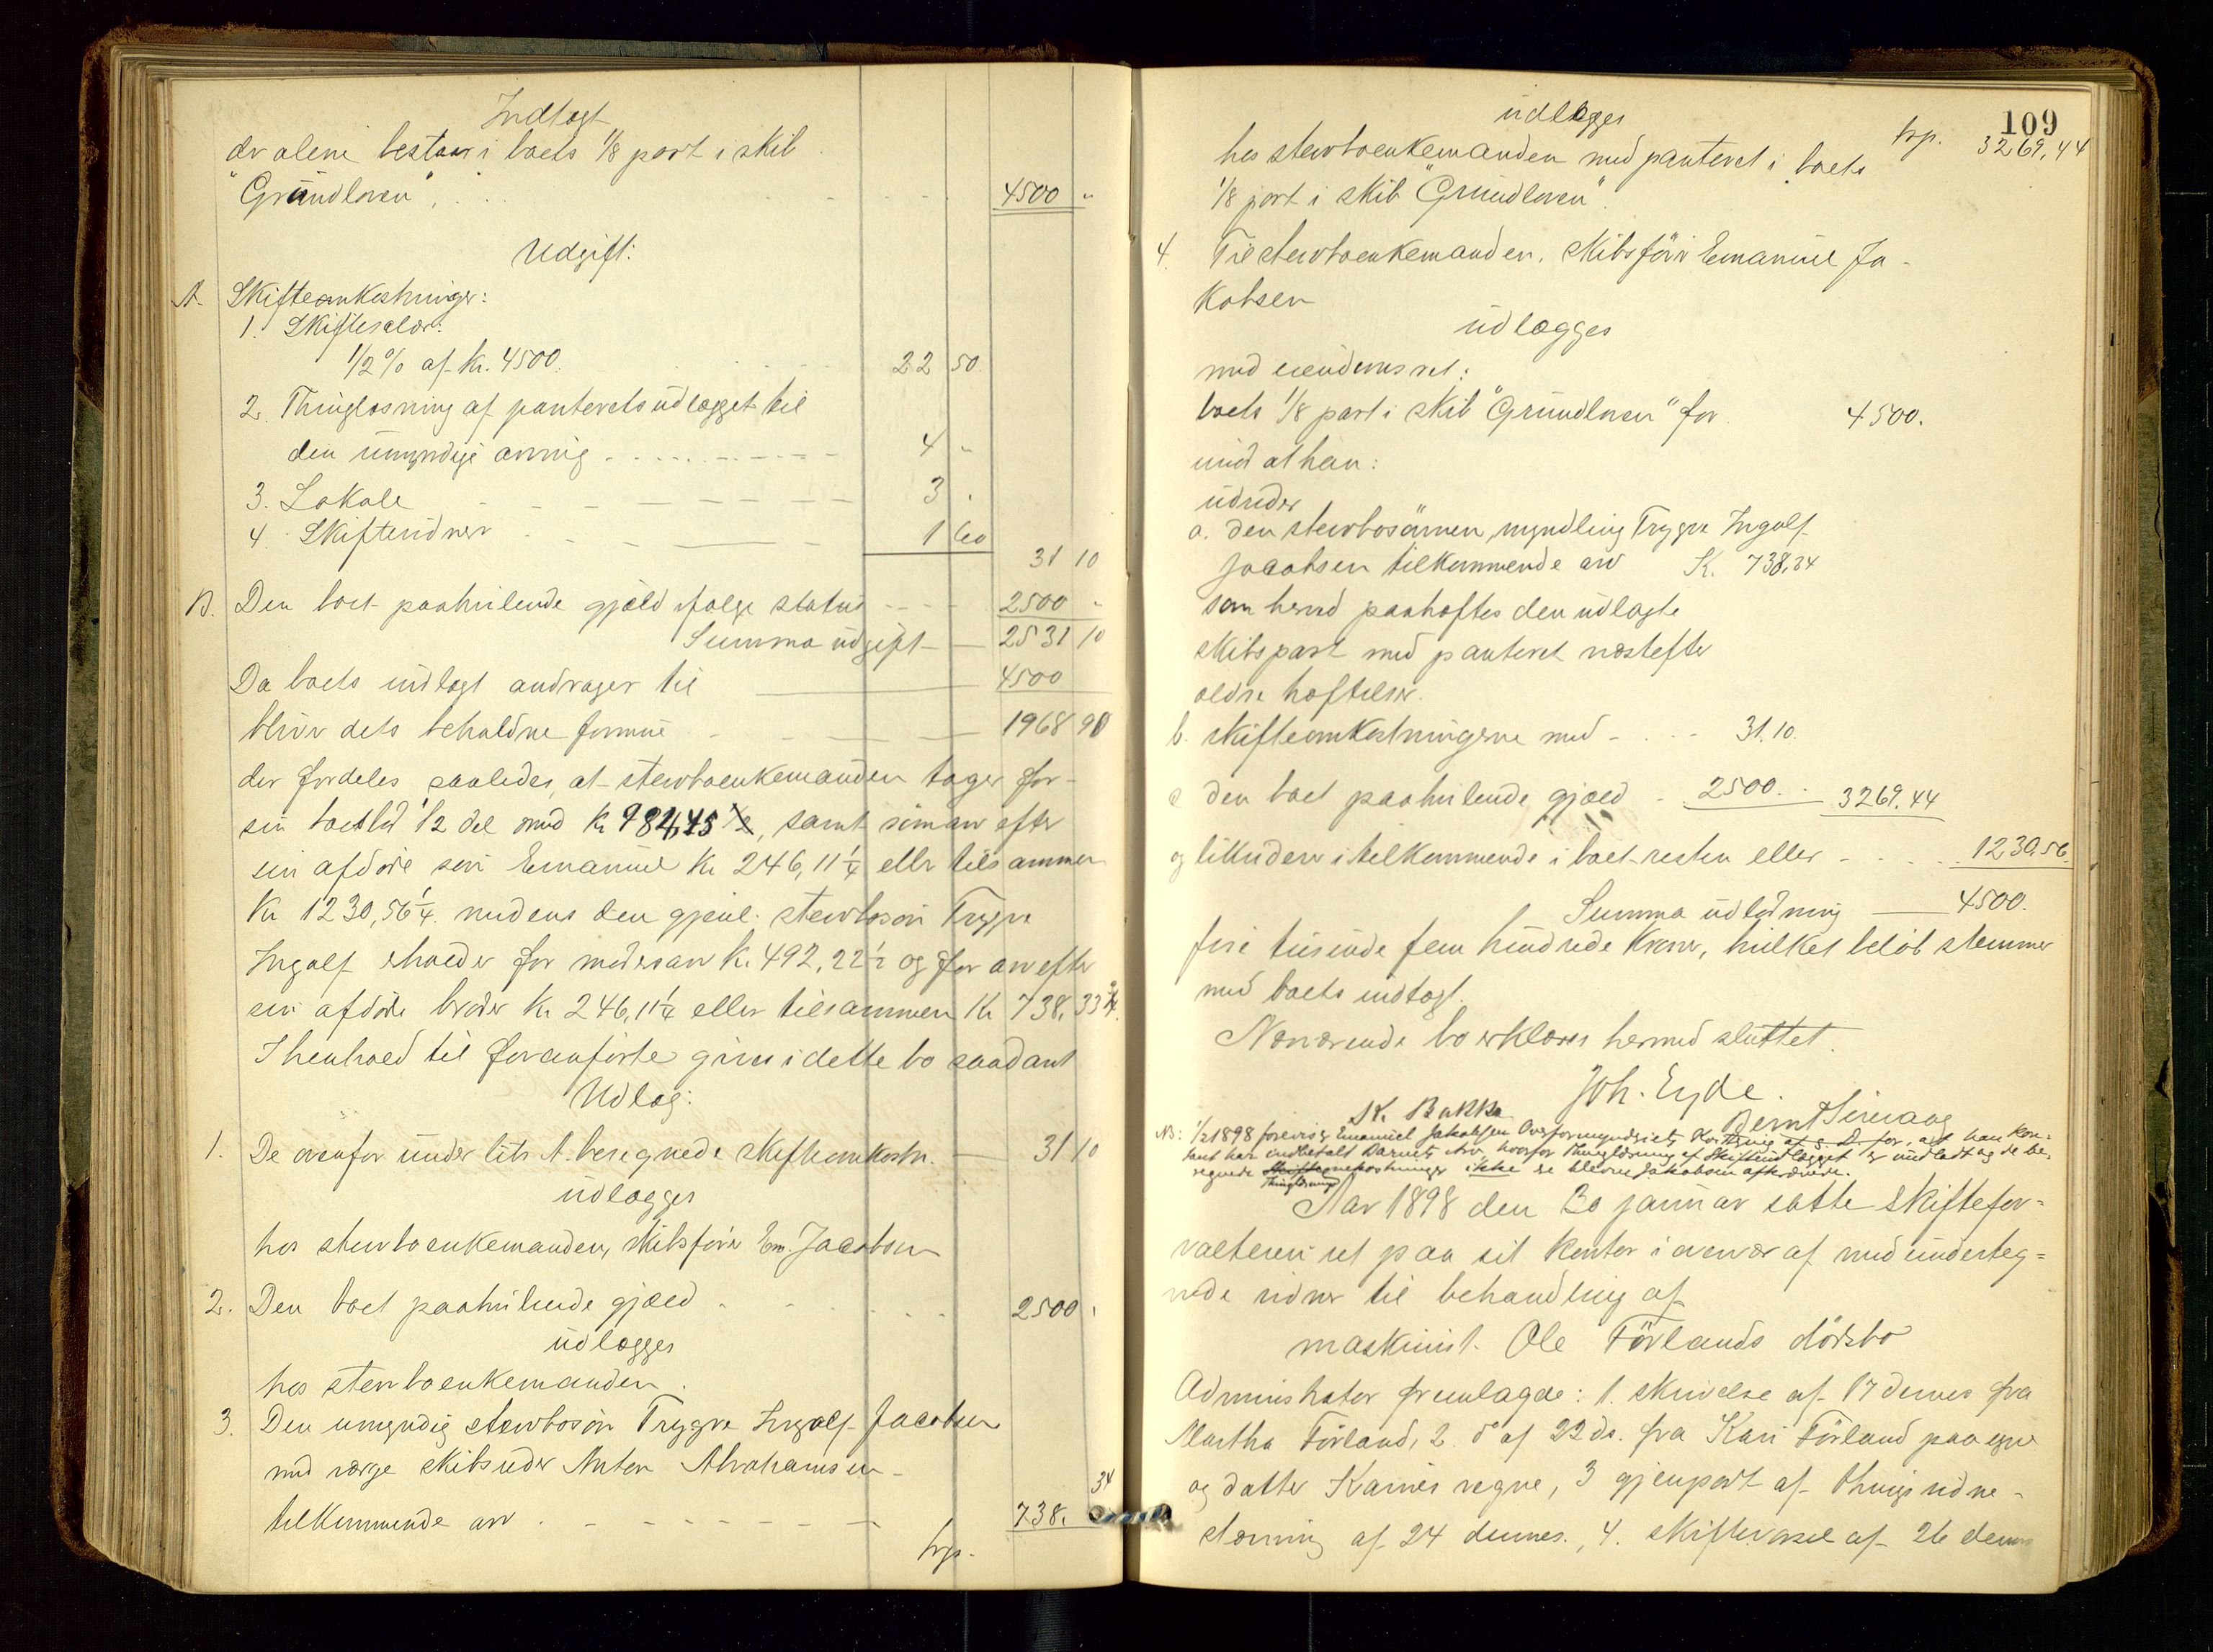 Indtægt
der alene bestaar i boets 1/8 part i skib
"Grundloven", . . . 4500 "
Udgift:
A. Skifteomkostninger:
1. Skiftesalær:
1/2 % af kr. 4500. 22 50.
2. Thinglæsning af panteretsudlægget til
den umyndige arving 4 "
3. Lokale 3 .
4. Skiftevidner 1 60
31 10
B. Den boet paahvilende gjæld ifølge status 2500 "
Summa udgift 2531 10
Da boets indtægt andrager til 4500
bliver dets beholdne formue 1968 90
der fordeles saaledes, at stervboenkemanden tager for
sin boeslod 1/2 del med kr 984,45, samt som arv efter
sin afdøde søn Emanuel kr 246,11 1/4 eller tilsammen
kr 1230,56 1/4. medens den gjenl. stervbosøn Trygve
Ingolf erholder for mødrearv kr. 492,22 1/2 og for arv efter
sin afdøde broder kr 246,11 1/4 eller tilsammen kr 738,33 3/4.
I henhold til foranførte gives i dette bo saadant
Udlæg:
1. De ovenfor under litr A. beregnede skifteomkostn. 31 10
udlægges
hos stervboenkemanden, skibsfører Em. Jacobsen
2. Den boet paahvilende gjæld 2500 "
udlægges
hos stervboenkemanden.
3. Den umyndig stervbosøn Trygve Ingolf Jacobsen
med værge skibsreder Anton Abrahamsen
34
tilkommende arv 738.
trp.
109
udlægges
trp. 3269,44
hos stervboenkemanden med panteret i boets
1/8 part i skib "Grundloven".
4. Til stervboenkemanden, skibsfører Emanuel Ja-
kobsen
udlægges
med eiendomsret:
boets 1/8 part i skib "Grundloven" for 4500.
mod at han:
udreder
a. den stervbosønnen, myndling Trygve Ingolf
Jacobsen tilkommende arv K. 738,34
som herved paaheftes den udlagte
skibspart med panteret næstefter
ældre heftelser.
b. skifteomkostningerne med 31.10.
c den boet paahvilende gjæld 2500. 3269.44
og likviderer i tilkommende i boet resten eller 1230.56.
Summa udlodning 4500.
fire tusinde fem hundrede kroner, hvilket beløb stemmer
med boets indtægt.
Nærværende bo erklæres hermed sluttet.
Joh. Eyde.
K. Bakka Bernt Sirevaag
NB: 1/2 1898 foreviste Emanuel Jakobsen Overformynderiets Kvittering af s. D. for, at han kon-
tant har indbetalt Barnets Arv, hvorfor Thinglæsning af Skifteudlægget er undladt og de be-
regnede Skifteomkostninger ikke er blevne Jakobsen afkrævede.
Thinglæsnings
Aar 1898 den 30 januar satte skiftefor-
valteren ret paa sit kontor i overvær af medunderteg-
nede vidner til behandling af
maskinist Ole Førlands dødsbo
Administrator fremlagde: 1. skrivelse af 17 dennes fra
Martha Førland, 2. do af 22 ds. fra Kari Førland paa egne
og datter Karines vegne, 3 gjenpart af thingsvidne-
stævning af 24 dennes., 4. skiftevarsel af 26 dennes